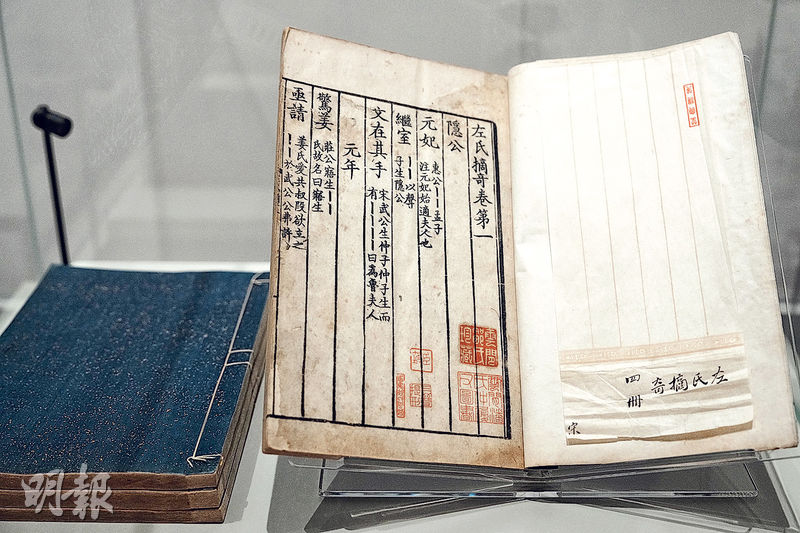 左氏摘奇
四冊
宋
左氏摘奇卷第一
隱公
元妃
惠公｜｜孟子
注元妃始適夫人也
繼室
｜｜以聲
子生隱公
文在其手
宋武公生仲子仲子生而
有｜｜｜｜曰為魯夫人
元年
驚姜
莊公寤生｜｜
氏故名曰寤生
亟請
姜氏愛共叔段欲立之
｜｜於武公公弗許
明報